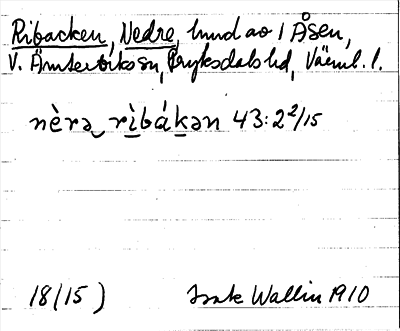 Ribacken, Nedre, hmd av 1 Åsen,
V. Ämtervik sn, Fryksdals hd, Värml. l.
nèrə rìbákən 43:2²/15
18(15) Isak Wallin 1910